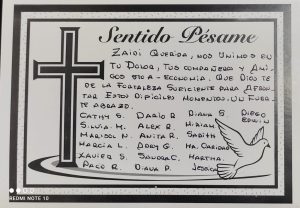 Sentido Pésame
ZAIDI QUERIDA, NOS UNIMOS EN
TU DOLOR, TUS COMPAÑEROS Y AMI-
GOS ECONOMIA, QUE DIOS TE
DE LA FORTALEZA SUFICIENTE PARA AFRON-
TAR ESTOS DIFICILES MOMENTOS. UN FUER-
TE ABRAZO.
CATHY S. DARIO R. DIANA S. DIEGO
SILVIA M. ALEX R. MIRIAM EDWIN
MARISOL N. ANITA R. SABITH
MARCIA L. DORY G. MA. CARIDAD
XAVIER S. SANDRA C. MARTHA.
PACO R. DIANA P. JESSICA
REDMI NOTE 10